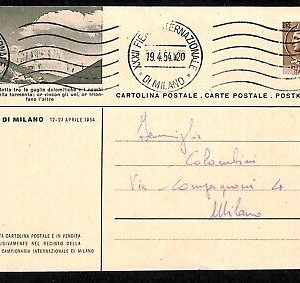 XXXII FIERA INTERNAZIONALE
19.4.54.20
DI MILANO
lotta tre le guglie dolomitiche e i nembi
della tormenta: or vincon gli uni, or trion-
fano l'altre
CARTOLINA POSTALE - CARTE POSTALE - POSTK
DI MILANO 12-27 APRILE 1954
Famiglia
Colombini
Via Compagnoni 4
Milano
TA CARTOLINA POSTALE È IN VENDITA
LUSIVAMENTE NEL RECINTO DELLA
CAMPIONARIA INTERNAZIONALE DI MILANO